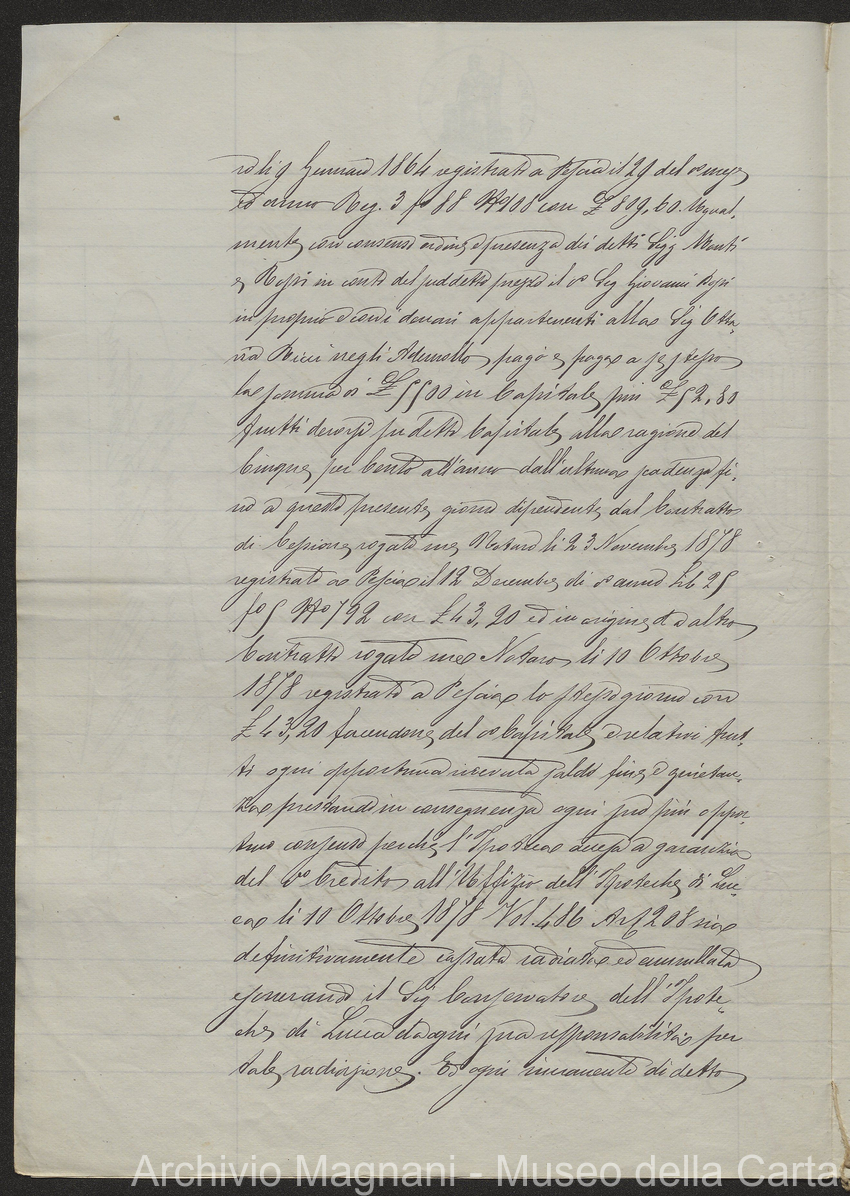 to li 9 Gennaro 1864 registrato a Pescia il 29 del º mese
ed anno Reg. 3 fº 88 Nº 208 con £ 809,60. Ugual-
mente con consenso ordine e presenza dei detti Sigg Monti
e Rossi in conto del suddetto prezzo il º Sig Giovanni Rossi
in proprio e con i denari appartenenti alla Sig Otta-
via Ricci negli Ademollo pagò e paga a se stesso
la somma di £ 5500 in Capitale più £ 52,80
frutti decorsi su detto Capitale alla ragione del
Cinque per Cento all'anno dall'ultima scadenza fi-
no a questo presente giorno dipendente dal Contratto
di Cessione rogato me Notaro li 23 Novembre 1878
registrato a Pescia il 12 Decembre di º anno Lib 25
fº 5 Nº 792 con £ 43,20 ed in origine da altro
Contratto rogato me Notaro li 10 Ottobre
1878 registrato a Pescia lo stesso giorno con
£ 43,20 facendone del º Capitale e relativi frut-
ti ogni opportuna ricevuta saldo fine e quietan-
za prestando in conseguenza ogni suo più oppor-
tuno consenso perchè l'Ipoteca accesa a garanzia
del dº Credito all'Uffizio dell'Ipoteche di Luc-
ca li 10 Ottobre 1878 Vol. 486 Art 208 sia
definitivamente cassata radiata ed annullata
esonerando il Sig Conservatore dell'Ipote-
che di Lucca da ogni sua responsabilità per
tale radiazione. Ed ogni rimanente di detto
Archivio Magnani - Museo della Carta